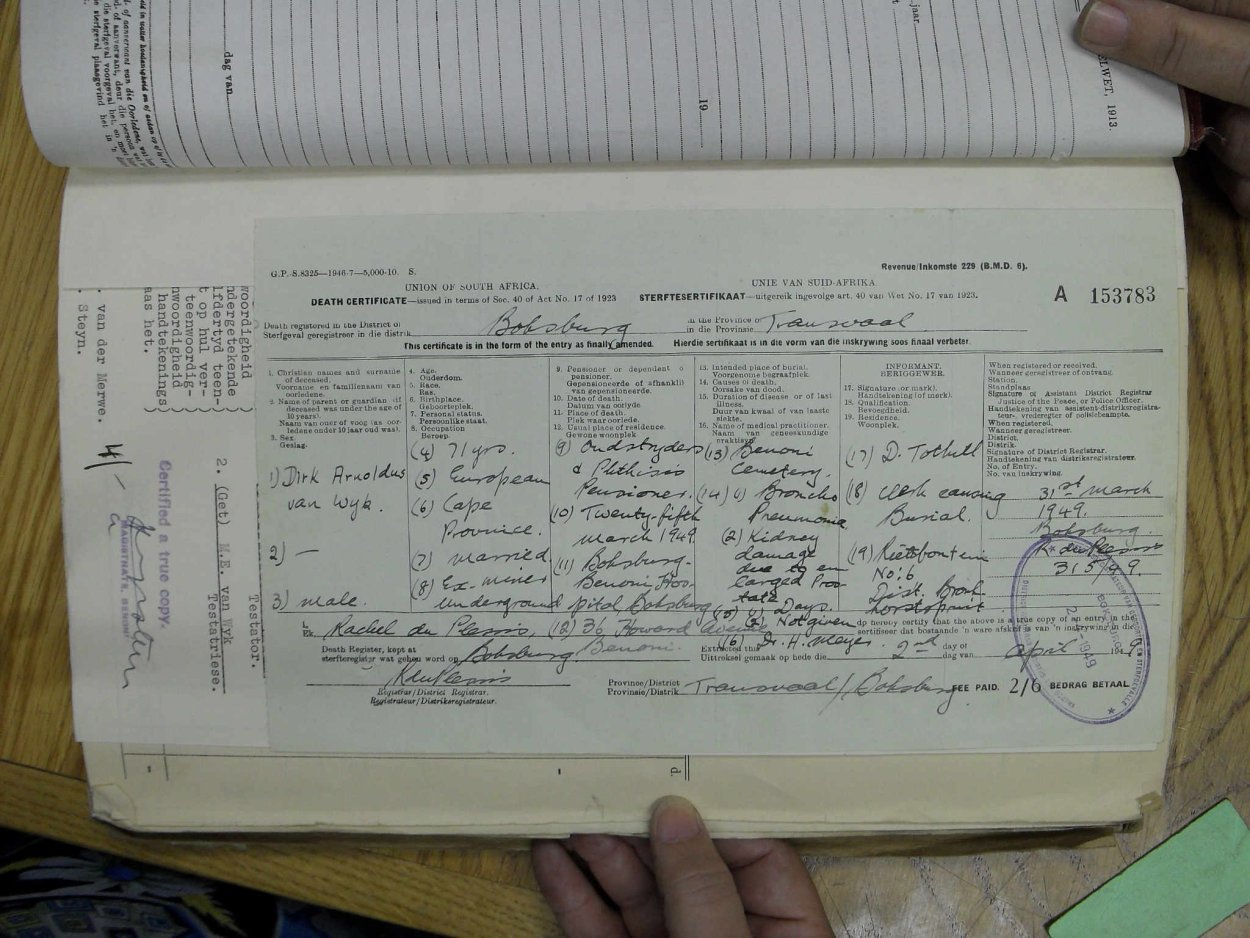 dag van
19
jaar.
ELWET, 1913.
G.P.-S.8325—1946-7—5,000-10. S.
Revenue/Inkomste 229 (B.M.D. 6).
UNION OF SOUTH AFRICA.
UNIE VAN SUID-AFRIKA.
DEATH CERTIFICATE—issued in terms of Sec. 40 of Act No. 17 of 1923
STERFTESERTIFIKAAT—uitgereik ingevolge art. 40 van Wet No. 17 van 1923.
A 153783
Death registered in the District of
Sterfgeval geregistreer in die distrik
Boksburg
in the Province of
in die Provinsie
Transvaal
This certificate is in the form of the entry as finally amended.
Hierdie sertifikaat is in die vorm van die inskrywing soos finaal verbeter.
1. Christian names and surname
of deceased.
Voorname en familienaam van
oorledene.
2. Name of parent or guardian (if
deceased was under the age of
10 years).
Naam van ouer of voog (as oor-
ledene onder 10 jaar oud was).
3. Sex.
Geslag.
1) Dirk Arnoldus
van Wyk.
2) —
3) male.
4. Age.
Ouderdom.
5. Race.
Ras.
6. Birthplace.
Geboorteplek.
7. Personal status.
Persoonlike staat.
8. Occupation
Beroep.
(4) 71 yrs.
(5) European
(6) Cape
Province.
(7) married
(8) Ex-miner
underground
9. Pensioner or dependent o
pensioner.
Gepensioneerde of afhankli
van gepensioneerde.
10. Date of death.
Datum van oorlyde
11. Place of death.
Plek waar oorlede.
12. Usual place of residence.
Gewone woonplek
(9) Oudstryders
& Phthisis
Pensioner.
(10) Twenty-fifth
march 1949.
(11) Boksburg-
Benoni Hos-
pital, Boksburg
(12) 36 Howard Avenue
Benoni.
13. Intended place of burial.
Voorgenome begraafplek.
14. Causes of death.
Oorsake van dood.
15. Duration of disease or of last
illness.
Duur van kwaal of van laaste
siekte.
16. Name of medical practitioner.
Naam van geneeskundige
praktisyn
(13) Benoni
Cemetery.
(14) (1) Broncho
Pneumonia
(2) Kidney
damage
due to en
larged Pros
tate
(15) (1) Days.
(2) Not given
(16) Dr. H. Meyer.
INFORMANT.
BERIGGEWER.
17. Signature (or mark).
Handtekening (of merk).
18. Qualification.
Bevoegdheid.
19. Residence.
Woonplek.
(17) D. Tothill
(18) Clerk causing
Burial.
(19) Rietfontein
No: 6
Dist. Bronk
horstspruit
When registered or received.
Wanneer geregistreer of ontvang.
Station.
Standplaas
Signature of Assistant District Registrar
Justice of the Peace, or Police Officer.
Handtekening van assistent-distriksregistra-
teur-, vrederegter of polisiebeampte.
When registered.
Wanneer geregistreer.
District.
Distrik.
Signature of District Registrar.
Handtekening van distriksregistrateur.
No. of Entry.
No. van inskrywing.
31st march
1949.
Boksburg.
K. du Plessis
315/49.
I,
Ek,
Rachel du Plessis,
do hereby certify that the above is a true copy of an entry in the
sertifiseer dat bostaande 'n ware afskrif is van 'n inskrywing in die
Death Register, kept at
sterfteregister wat gehou word op
Boksburg.
Extracted this
Uittreksel gemaak op hede die
2nd
day of
dag van
April
1949
R du Plessis
Registrar/District Registrar.
Registrateur/Distriksregistrateur.
Province/District
Provinsie/Distrik
Transvaal/Boksburg
FEE PAID. 2/6 BEDRAG BETAAL
woordigheid
ndergetekende
lfdertyd teen-
t op hul ver-
teenwoordig-
nwoordigheid
handtekenings
aas het.
. van der Merwe.
. Steyn.
Testator.
2. (Get) M.E. van Wyk
Testatriese.
Certified a true copy.
MAGISTRATE. BENONI